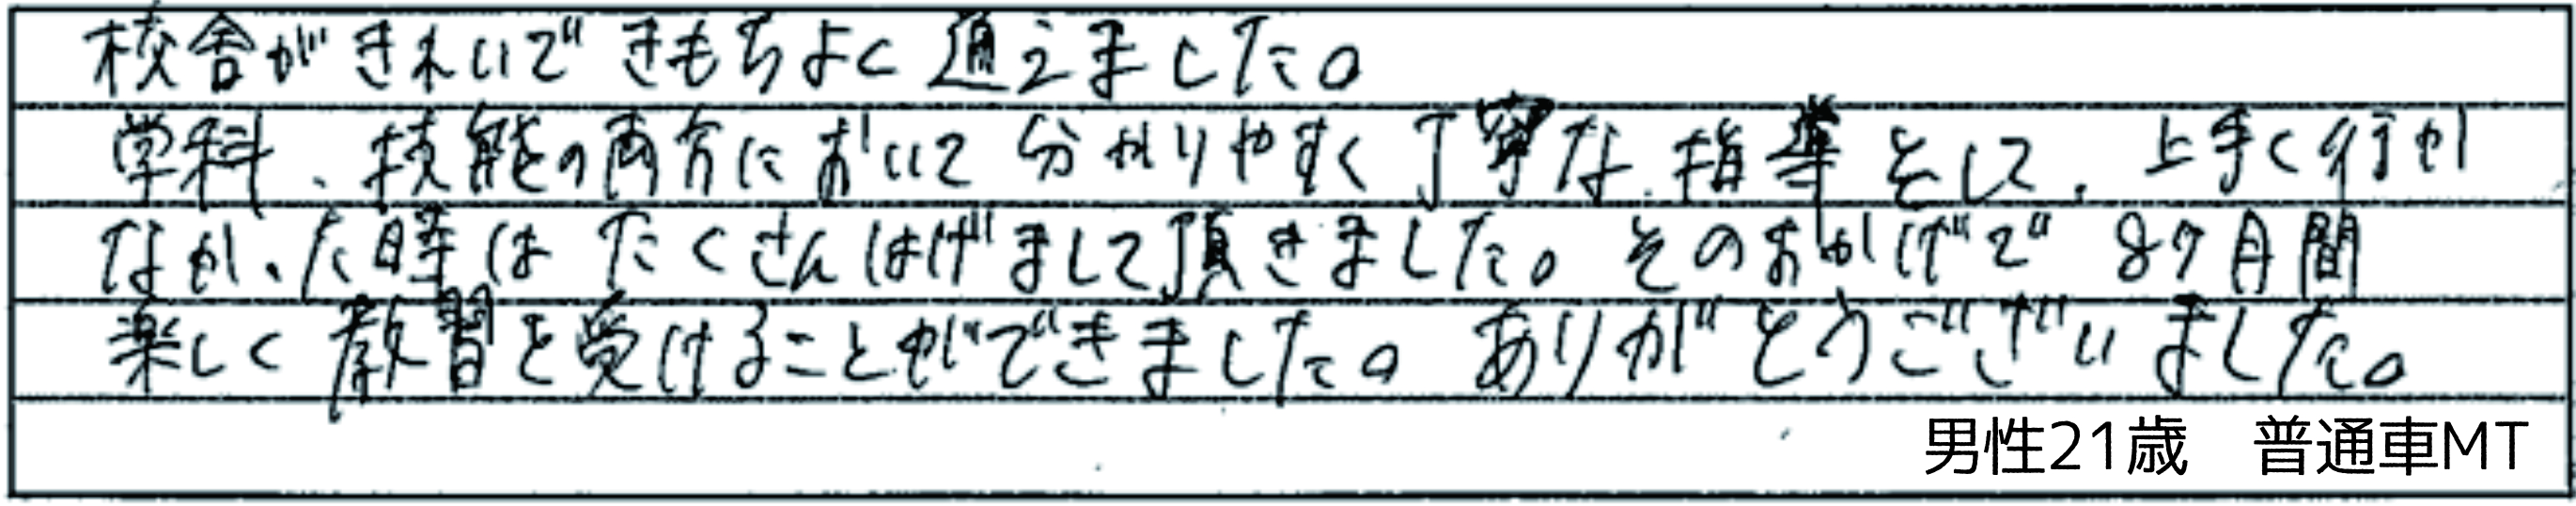 校舎がきれいできもちよく通えました。
学科、技能の両方において分かりやすく丁寧な指導をして、上手く行か
なかった時はたくさんはげまして頂きました。そのおかげで8ケ月間
楽しく教習を受けることができました。ありがとうございました。
男性21歳　普通車MT